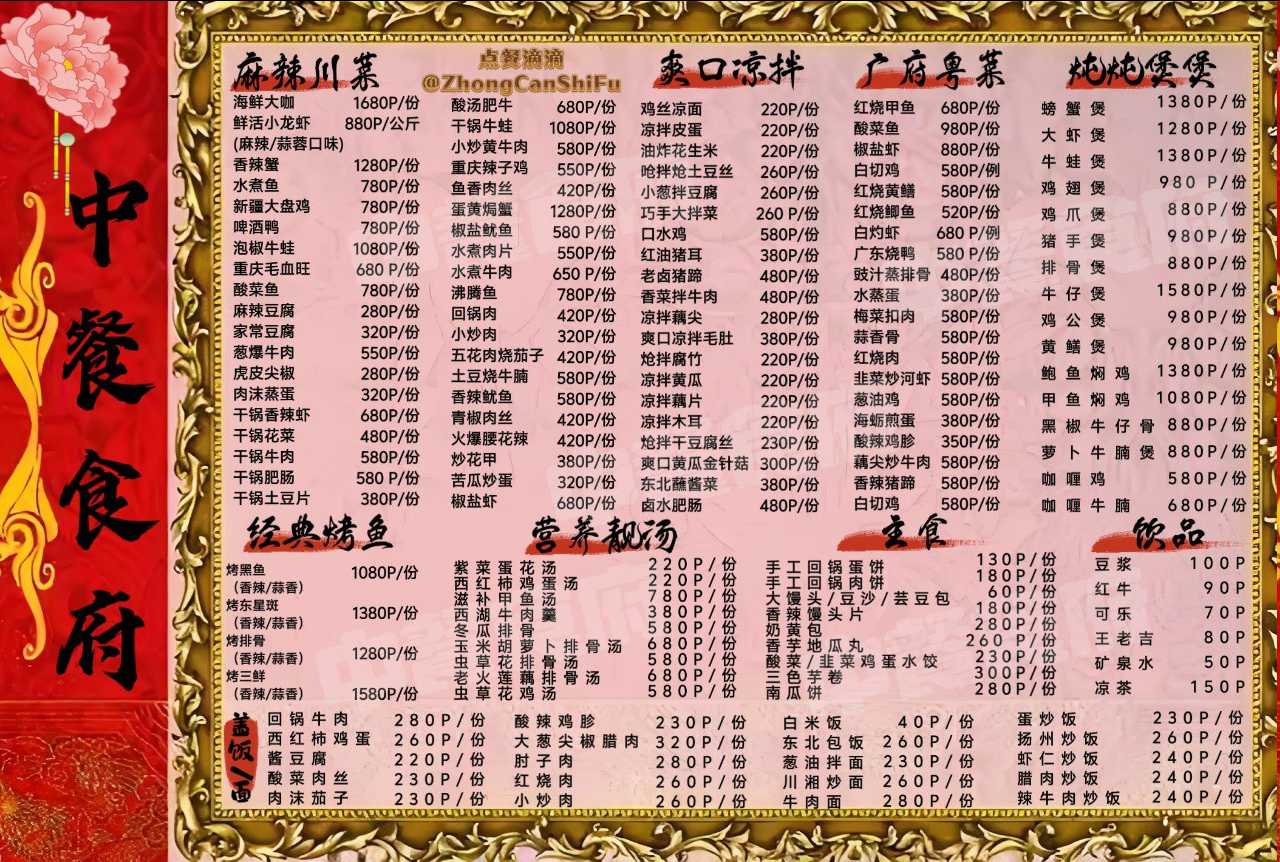 中餐食府
点餐滴滴
@ZhongCanShiFu
麻辣川菜
海鲜大咖 1680P/份
鲜活小龙虾 880P/公斤
(麻辣/蒜蓉口味)
香辣蟹 1280P/份
水煮鱼 780P/份
新疆大盘鸡 780P/份
啤酒鸭 780P/份
泡椒牛蛙 1080P/份
重庆毛血旺 680 P/份
酸菜鱼 780P/份
麻辣豆腐 280P/份
家常豆腐 320P/份
葱爆牛肉 550P/份
虎皮尖椒 280P/份
肉沫蒸蛋 320P/份
干锅香辣虾 680P/份
干锅花菜 480P/份
干锅牛肉 580P/份
干锅肥肠 580 P/份
干锅土豆片 380P/份
酸汤肥牛 680P/份
干锅牛蛙 1080P/份
小炒黄牛肉 580P/份
重庆辣子鸡 550P/份
鱼香肉丝 420P/份
蛋黄焗蟹 1280P/份
椒盐鱿鱼 580 P/份
水煮肉片 550P/份
水煮牛肉 650 P/份
沸腾鱼 780P/份
回锅肉 420P/份
小炒肉 320P/份
五花肉烧茄子 420P/份
土豆烧牛腩 580P/份
香辣鱿鱼 580P/份
青椒肉丝 420P/份
火爆腰花辣 420P/份
炒花甲 380P/份
苦瓜炒蛋 320P/份
椒盐虾 680P/份
爽口凉拌
鸡丝凉面 220P/份
凉拌皮蛋 220P/份
油炸花生米 220P/份
呛拌炝土豆丝 260P/份
小葱拌豆腐 260P/份
巧手大拌菜 260 P/份
口水鸡 580P/份
红油猪耳 380P/份
老卤猪蹄 480P/份
香菜拌牛肉 480P/份
凉拌藕尖 280P/份
爽口凉拌毛肚 380P/份
炝拌腐竹 220P/份
凉拌黄瓜 220P/份
凉拌藕片 220P/份
凉拌木耳 220P/份
炝拌干豆腐丝 230P/份
爽口黄瓜金针菇 300P/份
东北蘸酱菜 380P/份
卤水肥肠 480P/份
广府粤菜
红烧甲鱼 680P/份
酸菜鱼 980P/份
椒盐虾 880P/份
白切鸡 580P/例
红烧黄鳝 580P/份
红烧鲫鱼 520P/份
白灼虾 680 P/例
广东烧鸭 580 P/份
豉汁蒸排骨 480P/份
水蒸蛋 380P/份
梅菜扣肉 580P/份
蒜香骨 580P/份
红烧肉 580P/份
韭菜炒河虾 580P/份
葱油鸡 580P/份
海蛎煎蛋 380P/份
酸辣鸡胗 350P/份
藕尖炒牛肉 580P/份
香辣猪蹄 580P/份
白切鸡 580P/份
炖炖煲煲
螃蟹煲 1380P/份
大虾煲 1280P/份
牛蛙煲 1380P/份
鸡翅煲 980 P/份
鸡爪煲 880P/份
猪手煲 980P/份
排骨煲 880P/份
牛仔煲 1580P/份
鸡公煲 980P/份
黄鳝煲 980P/份
鲍鱼焖鸡 1380P/份
甲鱼焖鸡 1080P/份
黑椒牛仔骨 880P/份
萝卜牛腩煲 880P/份
咖喱鸡 580P/份
咖喱牛腩 680P/份
经典烤鱼
烤黑鱼
(香辣/蒜香) 1080P/份
烤东星斑
(香辣/蒜香) 1380P/份
烤排骨
(香辣/蒜香) 1280P/份
烤三鲜
(香辣/蒜香) 1580P/份
营养靓汤
紫菜蛋花汤 220P/份
西红柿鸡蛋汤 220P/份
滋补甲鱼汤 780P/份
西湖牛肉羹 380P/份
冬瓜排骨 580P/份
玉米胡萝卜排骨汤 680P/份
虫草花排骨汤 580P/份
老火莲藕排骨汤 680P/份
虫草花鸡汤 580P/份
主食
手工回锅蛋饼 130P/份
手工回锅肉饼 180P/份
大馒头/豆沙/芸豆包 60P/份
香辣馒头片 180P/份
奶黄包 280P/份
香芋地瓜丸 260 P/份
酸菜/韭菜鸡蛋水饺 230P/份
三色芋卷 300P/份
南瓜饼 280P/份
饮品
豆浆 100P
红牛 90P
可乐 70P
王老吉 80P
矿泉水 50P
凉茶 150P
盖饭/面
回锅牛肉 280P/份
西红柿鸡蛋 260P/份
酱豆腐 220P/份
酸菜肉丝 230P/份
肉沫茄子 230P/份
酸辣鸡胗 230P/份
大葱尖椒腊肉 320P/份
肘子肉 280P/份
红烧肉 260P/份
小炒肉 260P/份
白米饭 40P/份
东北包饭 260P/份
葱油拌面 230P/份
川湘炒面 260P/份
牛肉面 280P/份
蛋炒饭 230P/份
扬州炒饭 260P/份
虾仁炒饭 240P/份
腊肉炒饭 240P/份
辣牛肉炒饭 240P/份